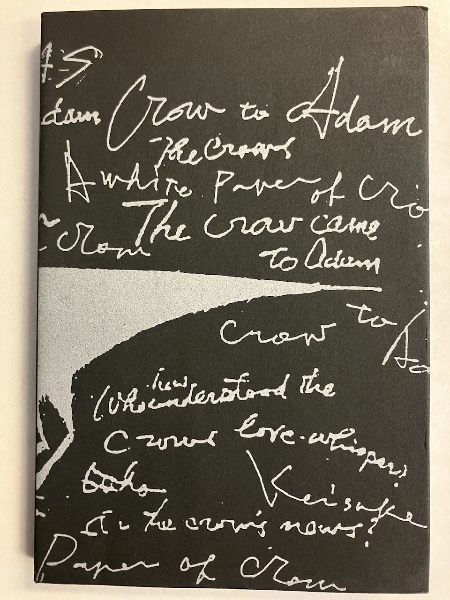 Adam Crow to Adam
The Crows
A white Paper of Cro
The craw came
Crom
to Adam
crow to Ad
how
(who understood the
Crows love-whisper,
Keisuke
It is the crow's news?
Paper of Crom